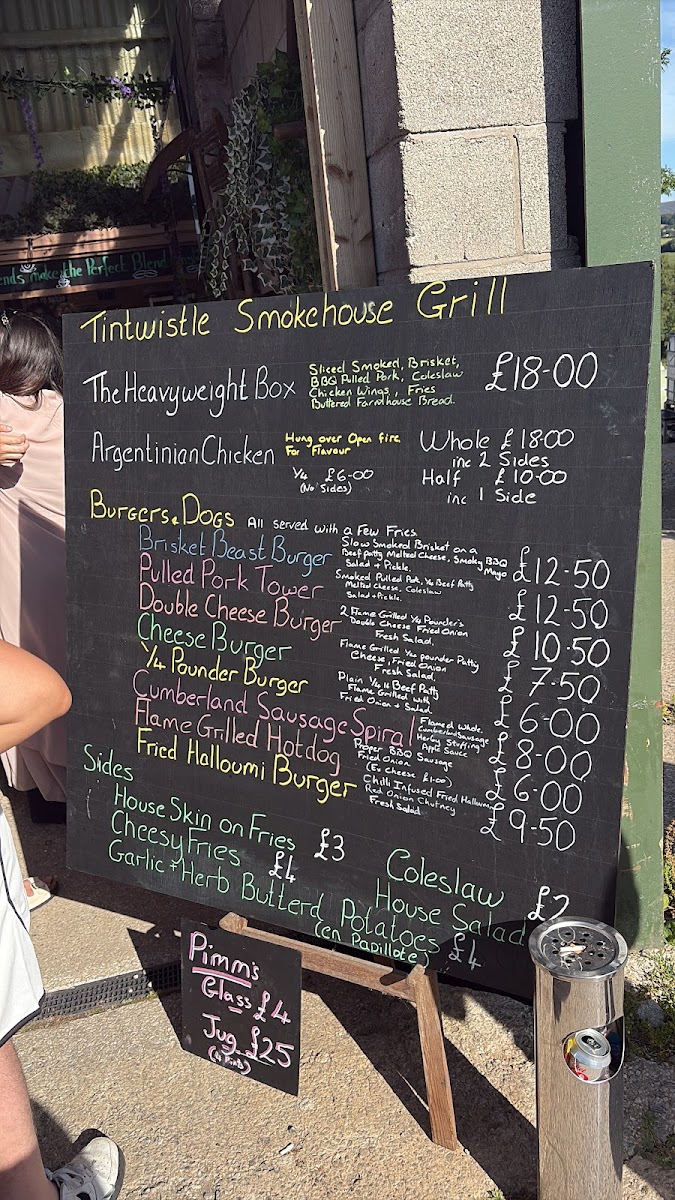 ends make the Perfect Blend
Tintwistle Smokehouse Grill
The Heavyweight Box
Sliced Smoked, Brisket,
BBQ Pulled Pork, Coleslaw
Chicken Wings, Fries
Buttered Farmhouse Bread.
£18-00
Argentinian Chicken
Hung over Open fire
For Flavour
1/4 £6-00
(No Sides)
Whole £18-00
inc 2 Sides
Half £10-00
inc 1 Side
Burgers & Dogs All served with a Few Fries
Brisket Beast Burger
Slow Smoked Brisket on a
Beef patty Melted Cheese, Smoky BBQ
Mayo
Salad + Pickle.
£12-50
Pulled Pork Tower
Smoked Pulled Pork, 1/4 Beef Patty
Melted Cheese, Coleslaw
Salad + Pickle.
£12-50
Double Cheese Burger
2 Flame Grilled 1/4 Pounder's
Double Cheese Fried Onion
Fresh Salad.
£10-50
Cheese Burger
Flame Grilled 1/4 pounder Patty
Cheese, Fried Onion
Fresh Salad.
£7-50
1/4 Pounder Burger
Plain 1/4 lb Beef Patty
Flame Grilled with
Fried Onion + Salad.
£6-00
Cumberland Sausage Spiral
Flamed whole
Cumberland Sausage
Herby Stuffing
Apple Sauce
£8-00
Flame Grilled Hotdog
Proper BBQ Sausage
Fried Onion
(Ex Cheese £1-00)
£6-00
Fried Halloumi Burger
Chilli Infused Fried Halloumi
Red Onion Chutney
Fresh Salad
£9-50
Sides
House Skin on Fries £3
Cheesy Fries £4
Garlic + Herb Butterd Potatoes
(en Papillote) £4
Coleslaw
House Salad £2
Pimm's
Glass £4
Jug £25